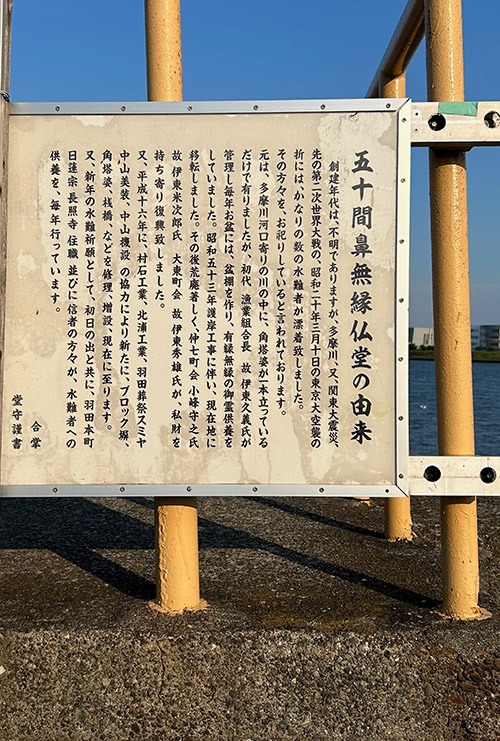 五十間鼻無縁仏堂の由来
創建年代は、不明でありますが、多摩川、又、関東大震災、
先の第二次世界大戦の、昭和二十年三月十日の東京大空襲の
折には、かなりの数の水難者が漂着致しました。
その方々を、お祀りしていると言われております。
元は、多摩川河口寄りの川の中に、角塔婆が一本立っている
だけで有りましたが、初代 漁業組合長 故 伊東久義氏が
管理し毎年お盆には、盆棚を作り、有縁無縁の御霊供養を
していました。昭和五十三年護岸工事に伴い、現在地に
移転しました。その後荒廃著しく、仲七町会 小峰守之氏
故 伊東米次郎氏 大東町会 故 伊東秀雄氏が、私財を
持ち寄り復興致しました。
又、平成十六年に、村石工業、北浦工業、羽田葬祭スミヤ
中山美装、中山機設 の協力により新たに、ブロック塀、
角塔婆、桟橋 などを修理、増設、現在に至ります。
又、新年の水難祈願として、初日の出と共に、羽田本町
日蓮宗 長照寺 住職 並びに信者の方々が、水難者への
供養を、毎年行っています。
合掌
堂守謹書